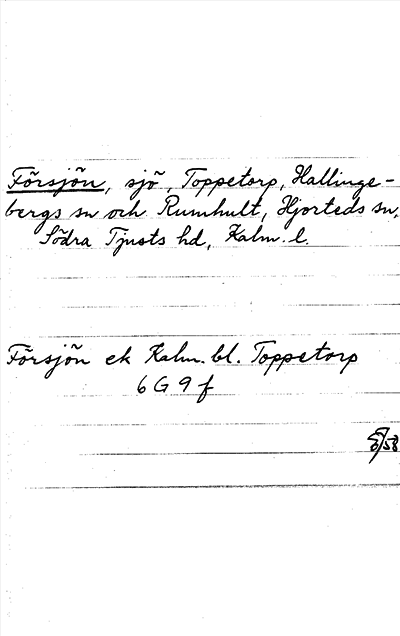 Försjön, sjö, Toppetorp, Hallinge-
bergs sn och Rumhult, Hjorteds sn,
Södra Tjusts hd, Kalm. l.
Försjön ek Kalm. bl. Toppetorp
6 G 9 f